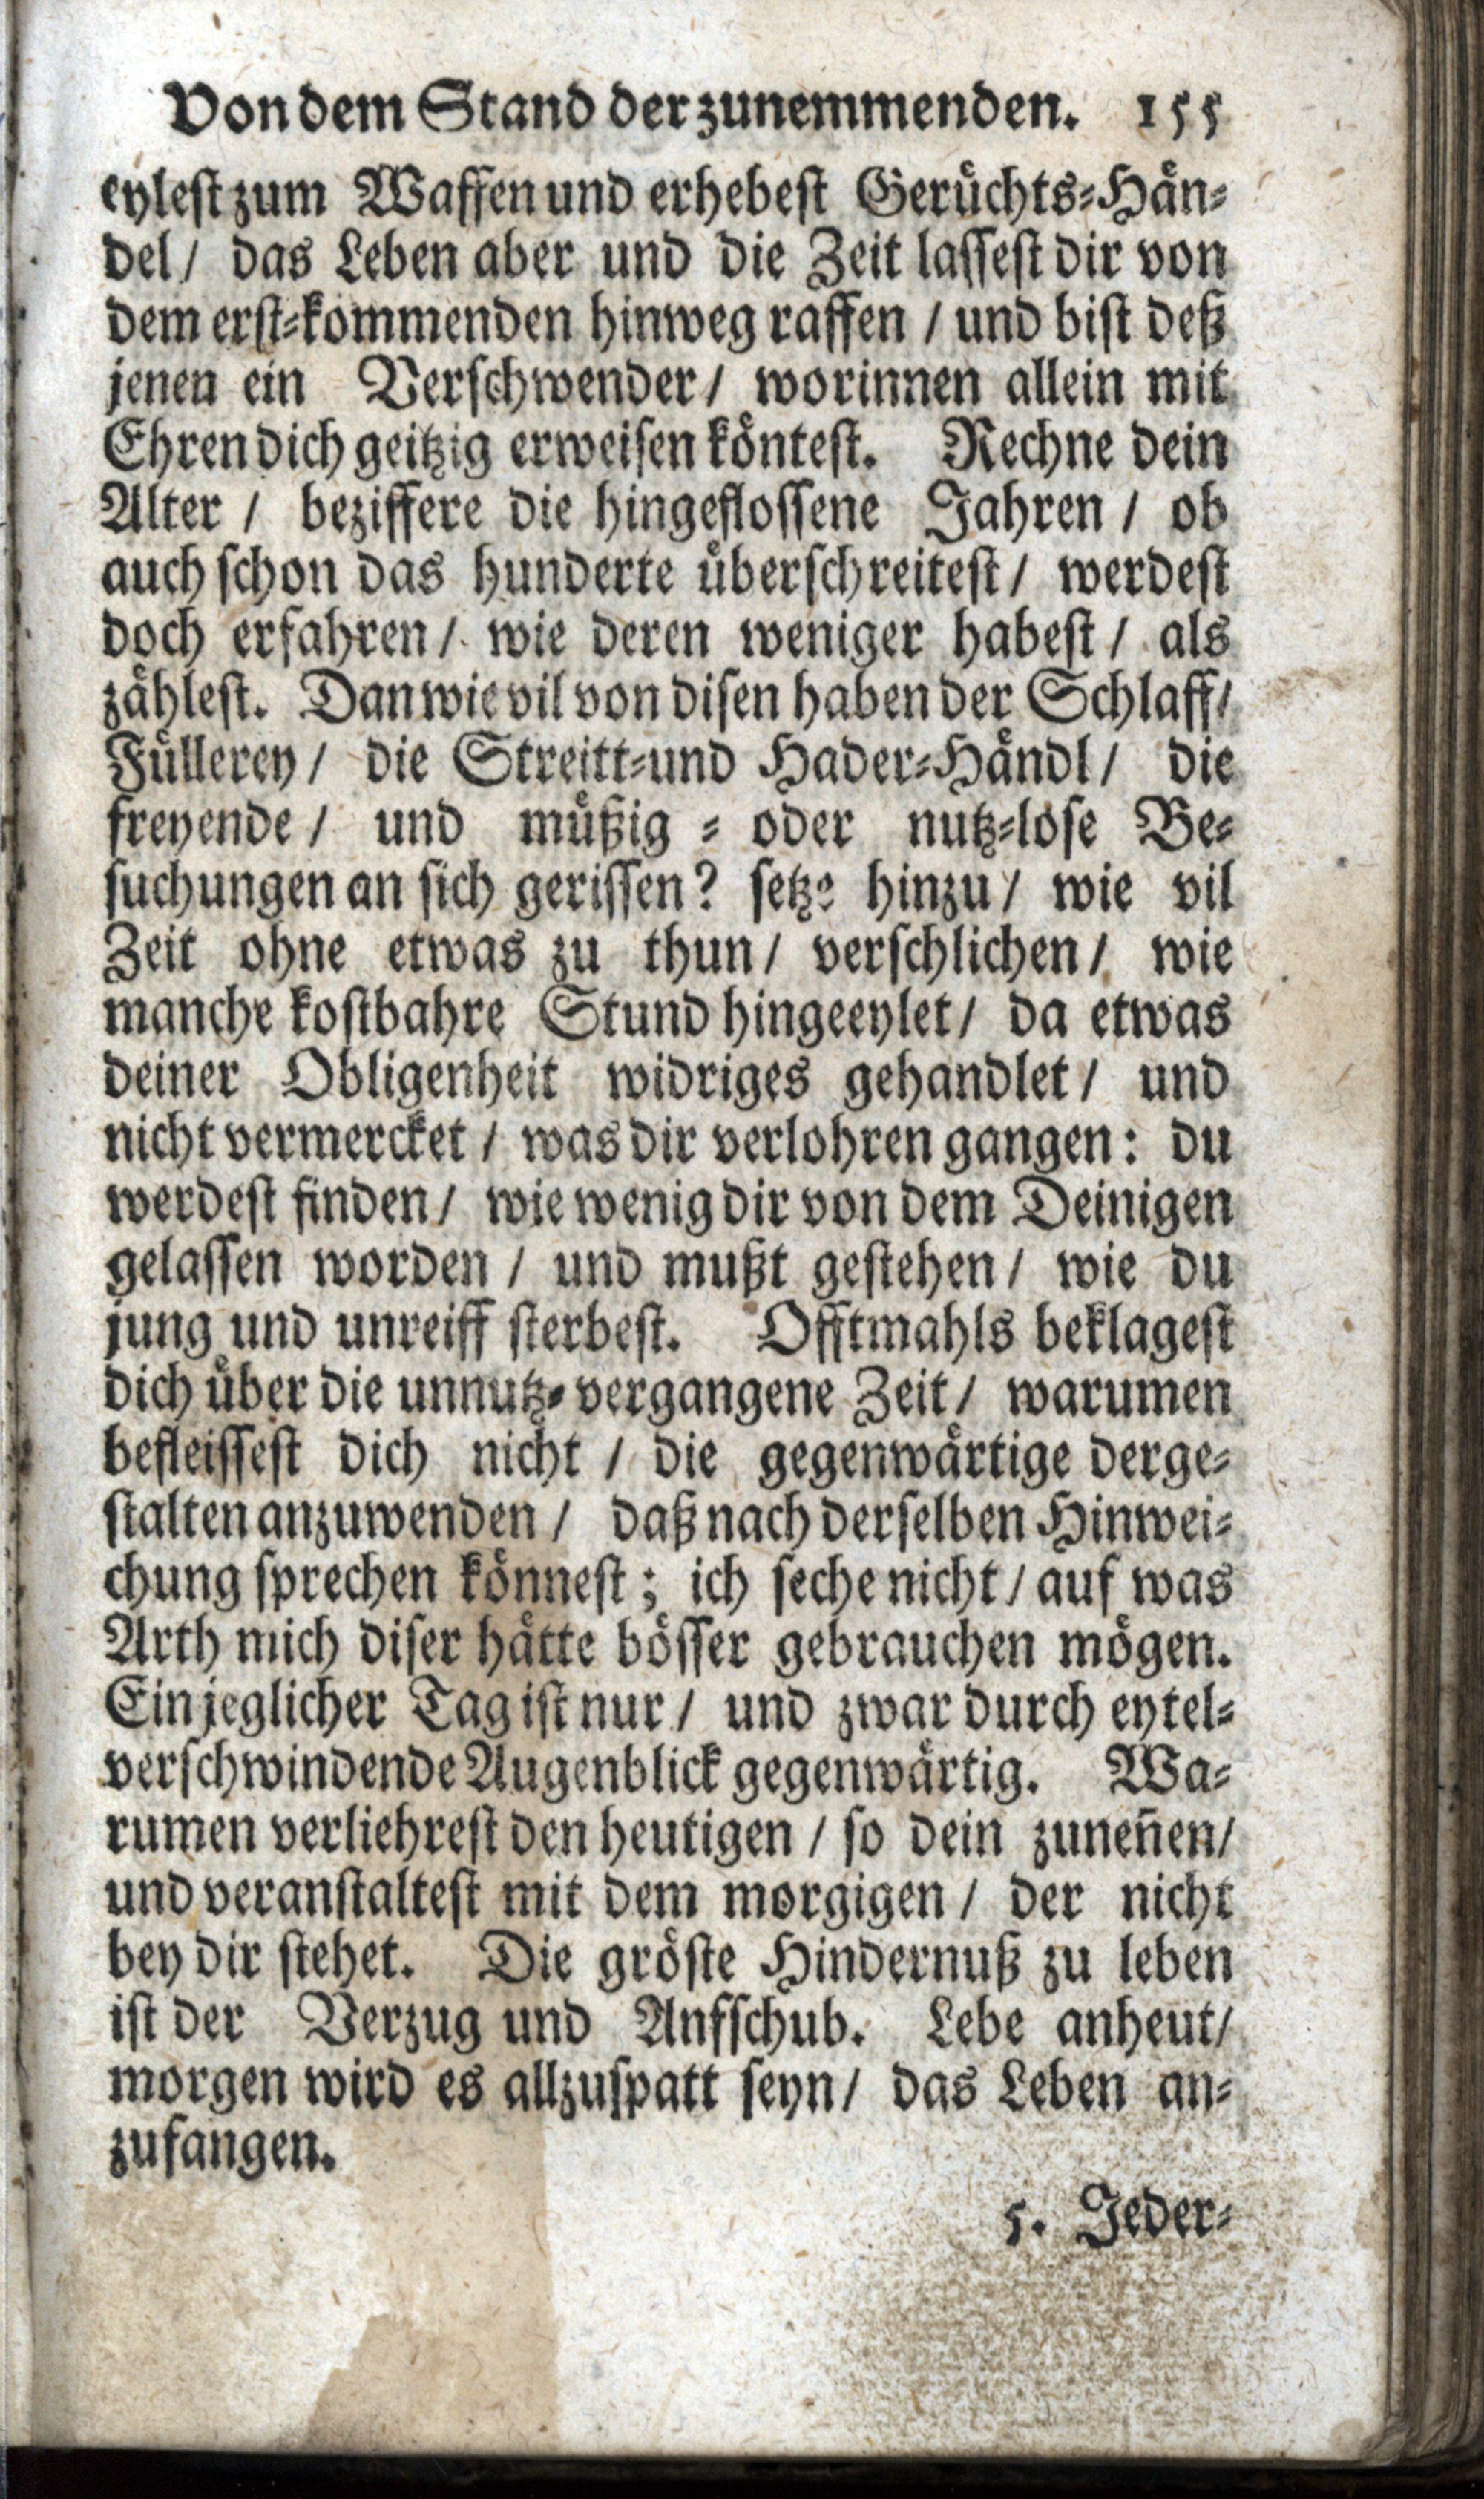 Von dem Stand der zunemmenden. 155
eylest zum Waffen und erhebest Gerüchts-Hän-
del / das Leben aber und die Zeit lassest dir von
dem erst-kommenden hinweg raffen / und bist deß
jenen ein Verschwender / worinnen allein mit
Ehren dich geitzig erweisen köntest. Rechne dein
Alter / beziffere die hingeflossene Jahren / ob
auch schon das hunderte überschreitest / werdest
doch erfahren / wie deren weniger habest / als
zählest. Dan wie vil von disen haben der Schlaff /
Füllerey / die Streitt-und Hader-Händl / die
freyende / und müßig - oder nutz-lose Be-
suchungen an sich gerissen? setze hinzu / wie vil
Zeit ohne etwas zu thun / verschlichen / wie
manche kostbahre Stund hingeeylet / da etwas
deiner Obligenheit widriges gehandlet / und
nicht vermercket / was dir verlohren gangen: du
werdest finden / wie wenig dir von dem Deinigen
gelassen worden / und mußt gestehen / wie du
jung und unreiff sterbest. Offtmahls beklagest
dich über die unnutz-vergangene Zeit / warumen
befleissest dich nicht / die gegenwärtige derge-
stalten anzuwenden / daß nach derselben Hinwei-
chung sprechen könnest; ich seche nicht / auf was
Arth mich diser hätte bösser gebrauchen mögen.
Ein jeglicher Tag ist nur / und zwar durch eytel-
verschwindende Augenblick gegenwärtig. Wa-
rumen verliehrest den heutigen / so dein zuneñen /
und veranstaltest mit dem morgigen / der nicht
bey dir stehet. Die gröste Hindernuß zu leben
ist der Verzug und Anfschub. Lebe anheut /
morgen wird es allzuspatt seyn / das Leben an-
zufangen.
5. Jeder-